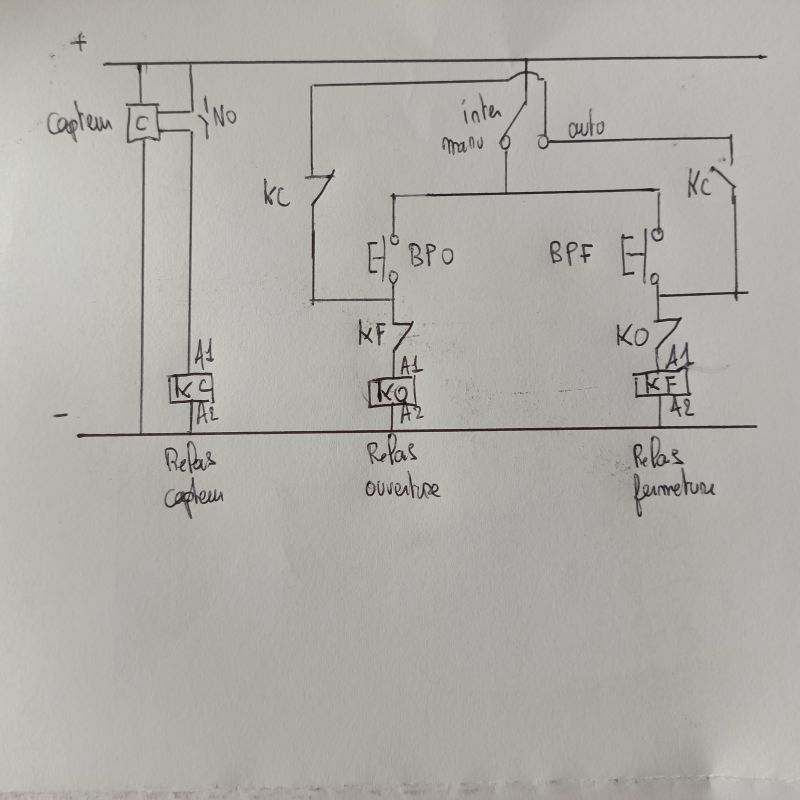 +
Capteur
C
NO
inter
manu
auto
KC
KC
BPO
BPF
KF
KO
A1
KC
A2
A1
KO
A2
A1
KF
A2
-
Relais
capteur
Relais
ouverture
Relais
fermeture